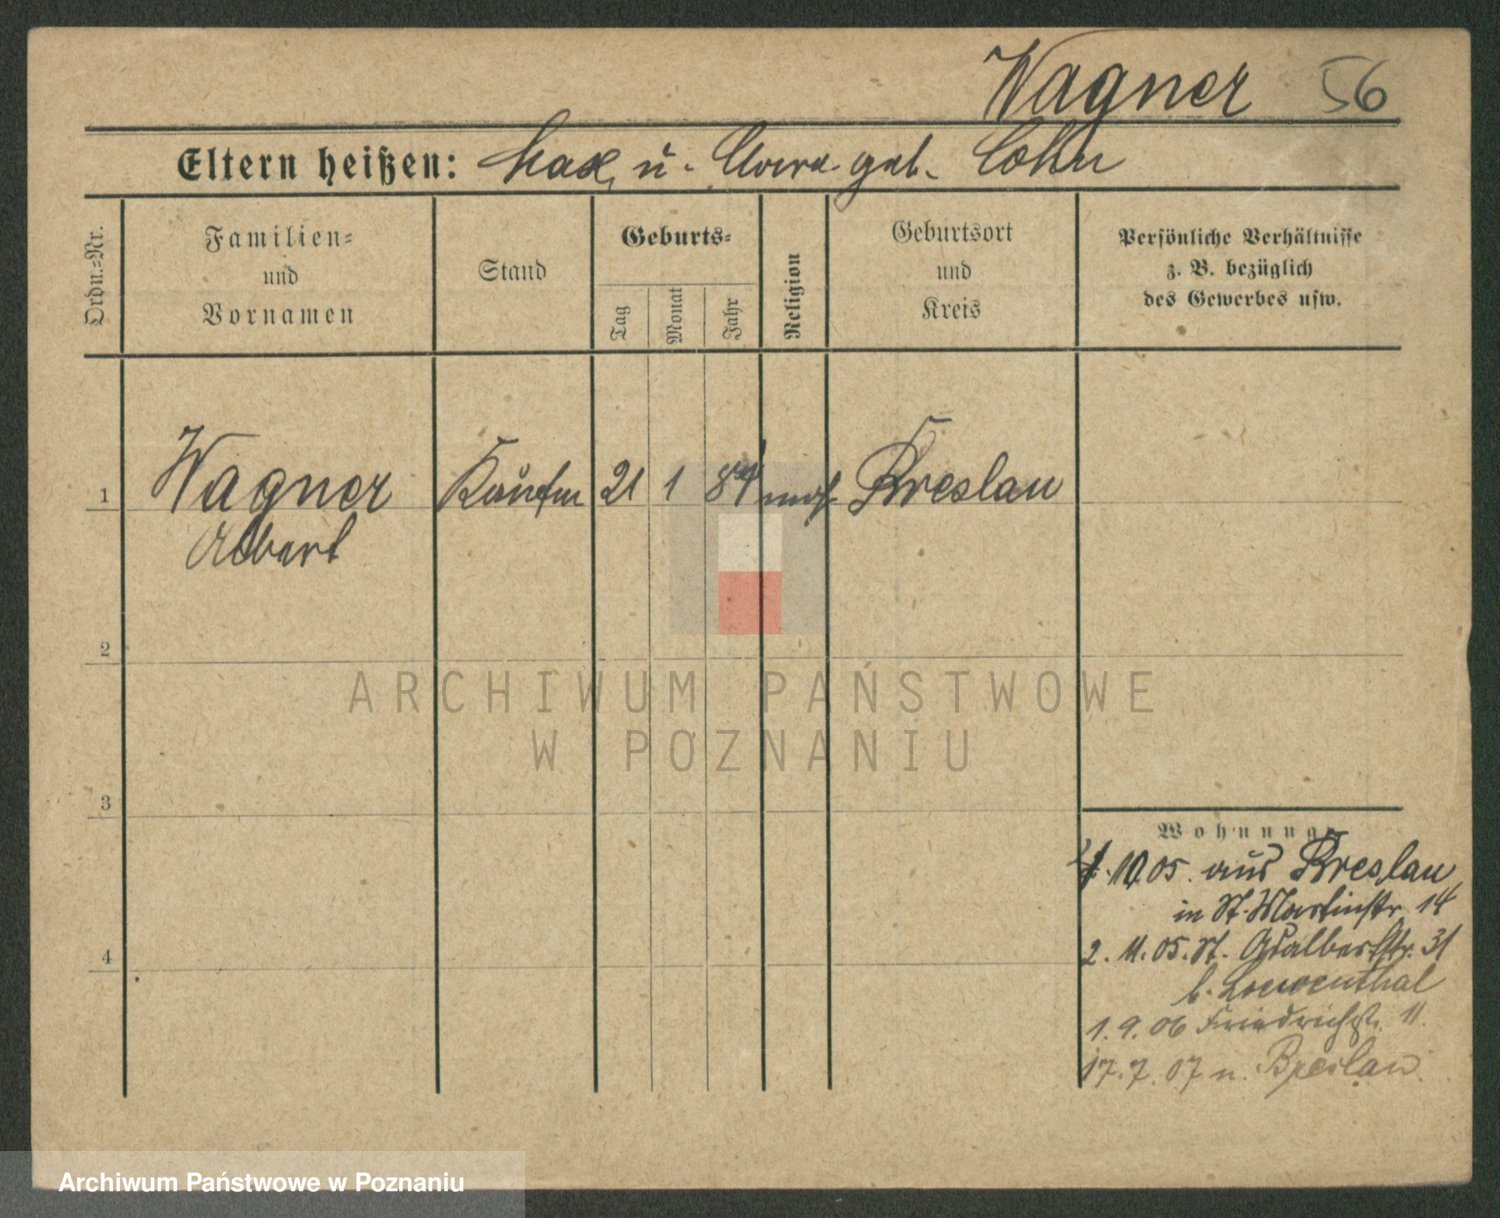 Wagner 56
Eltern heißen: Max u. Clara geb. Cohn
Ordn.-Nr.
Familien-
und
Vornamen
Stand
Geburts-
Tag
Monat
Jahr
Religion
Geburtsort
und
Kreis
Persönliche Verhältnisse
z. B. bezüglich
des Gewerbes usw.
1 Wagner Kaufm 21 1 84 mos. Breslau
Albert
2
3
4
Wohnung
10 05. aus Breslau
in St. Martinstr. 14
2. 11. 05. St. Adalbertstr. 31
b. Loewenthal
1. 9. 06 Friedrichstr. 11.
17. 7. 07 n. Breslau.
ARCHIWUM PAŃSTWOWE
W POZNANIU
Archiwum Państwowe w Poznaniu